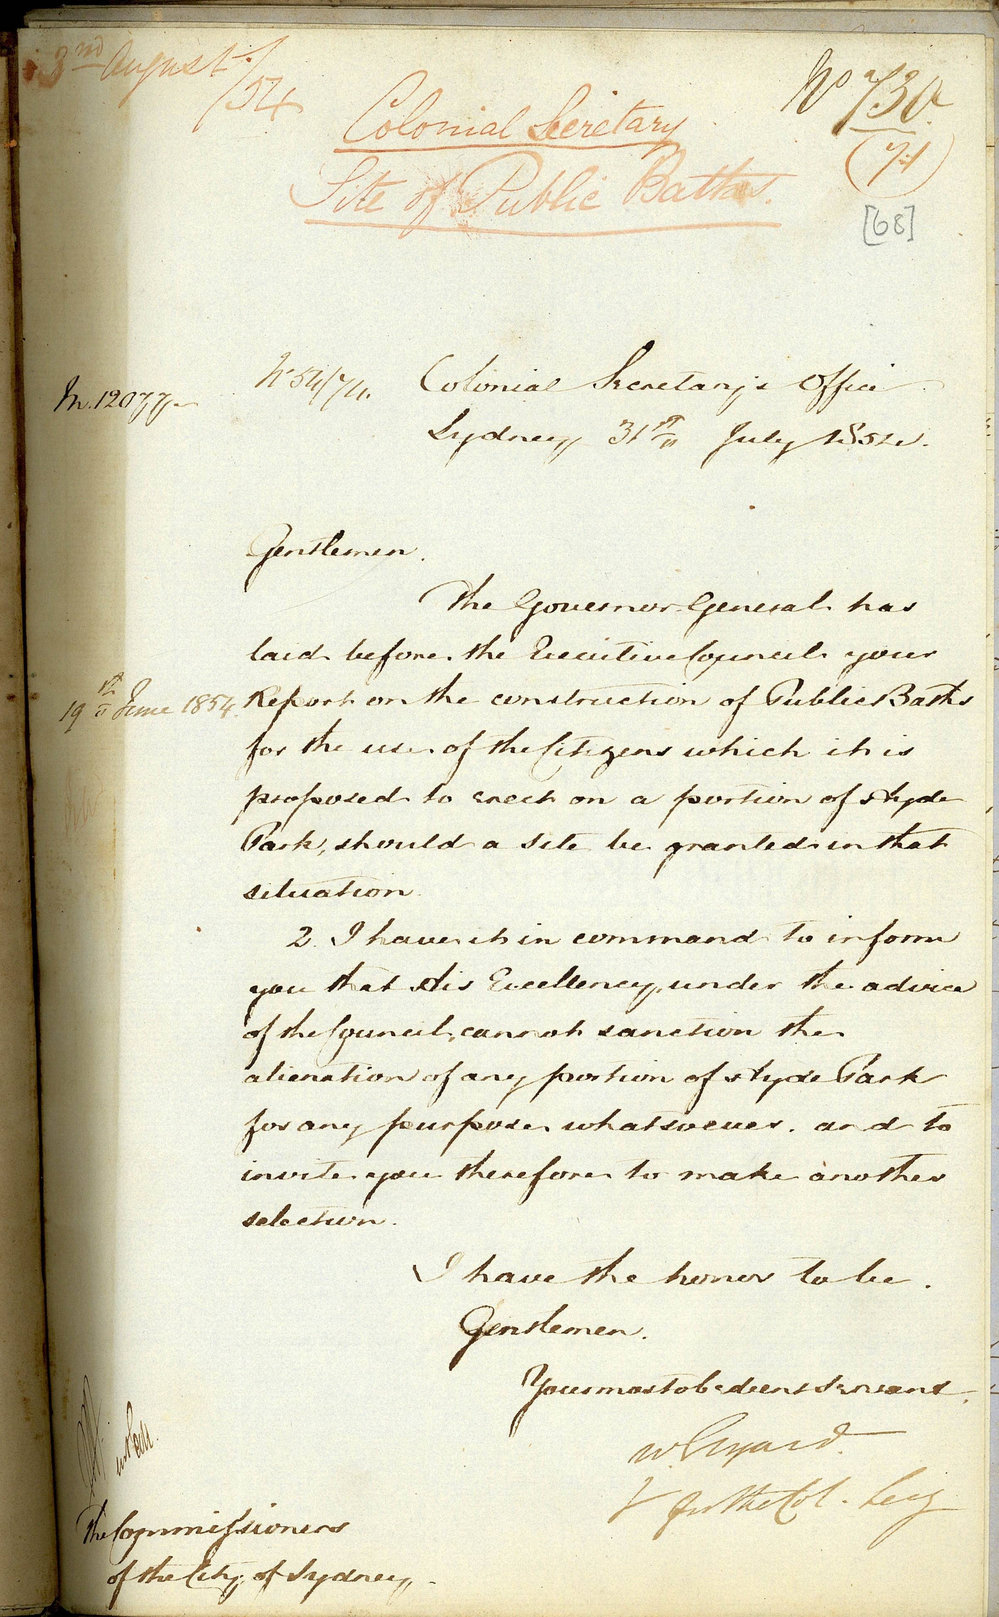 3nd August /54
No 730
(71)
[68]
Colonial Secretary
Site of Public Baths.
No 54/74. Colonial Secretary's Office
Sydney, 31st July 1854.
Gentlemen.
The Governor General has
laid before the Executive Council your
19th June 1854. Report on the construction of Public Baths
for the use of the Citizens which it is
proposed to erect on a portion of Hyde
Park, should a site be granted in that
situation.
2. I have it in command to inform
you that His Excellency, under the advice
of the Council, cannot sanction the
alienation of any portion of Hyde Park
for any purpose whatsoever. and to
invite you therefore to make another
selection.
I have the honor to be.
Gentlemen.
Your most obedient Servant.
for the Col. Secy
The Commissioners
of the City of Sydney,